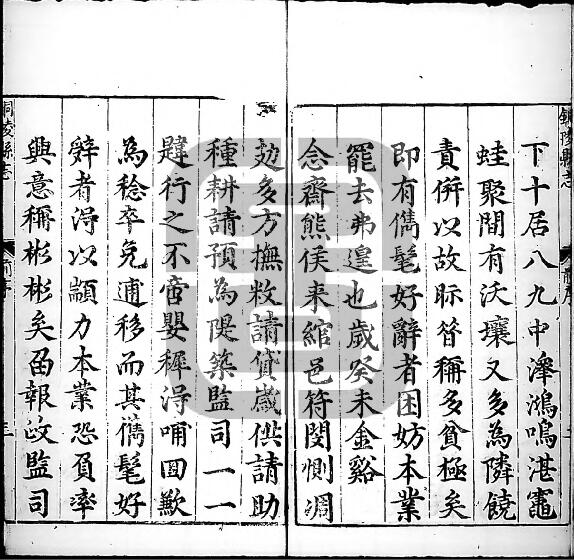 銅陵縣志
前序
二
下十居八九中澤鴻鳴湛竈
蛙聚間有沃壤又多為隣饒
責併以故眎昝稱多貧極矣
即有儁髦好辭者困妨本業
罷去弗遑也歲癸未金谿
念齋熊侯来綰邑符閔惻凋
攰多方撫敉請貸歲供請助
種耕請預為隄築監司一一
韙行之不啻嬰稺淂哺囬歉
為稔卒免逋移而其儁髦好
辤者淂以顓力本業恐負率
興意稱彬彬矣畱報政監司
銅陵縣志
前序
三